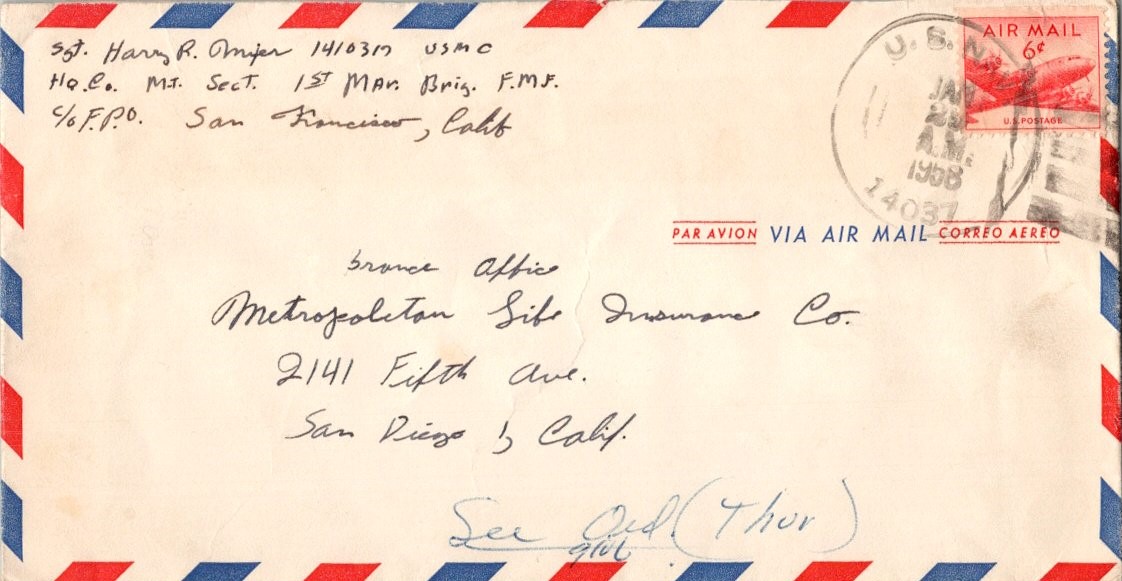 Sgt. Harry R. 1410317 USMC
Hq. Co. M.T. Sect. 1ST Mar. Brig. F.M.F.
c/o F.P.O. San Francisco, Calif
U. S. NAVY
JAN
A.M.
1958
14037
AIR MAIL
6¢
U.S. POSTAGE
PAR AVION VIA AIR MAIL CORREO AEREO
Brance Office
Metropoletan Life Insurance Co.
2141 Fifth Ave.
San Diego 1, Calif.
See Ord. (Thur)